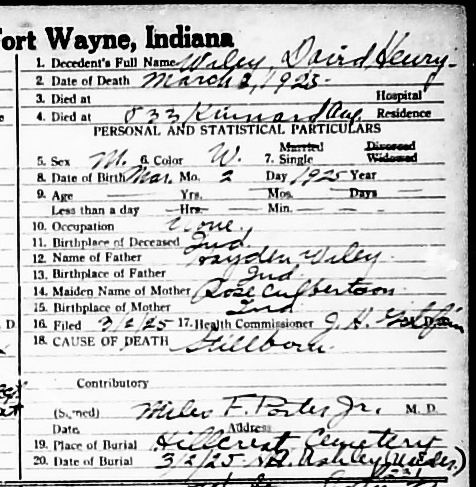 Fort Wayne, Indiana
1. Decedent's Full Name Wiley, David Henry
2. Date of Death March 2, 1925
3. Died at Hospital
4. Died at 833 Kinnard Ave Residence
PERSONAL AND STATISTICAL PARTICULARS
Married Divorced
5. Sex M. 6. Color W. 7. Single Widowed
8. Date of Birth Mar. Mo. 2 Day 1925 Year
9. Age Yrs. Mos. Days
Less than a day Hrs. Min.
10. Occupation None
11. Birthplace of Deceased Ind
12. Name of Father Hayden Wiley
13. Birthplace of Father Ind
14. Maiden Name of Mother Rose Culbertson
15. Birthplace of Mother Ind
16. Filed 3/2/25 17. Health Commissioner J. H.
18. CAUSE OF DEATH Stillborn
Contributory
(Signed) Miles F. Porter Jr. M. D.
Date Address
19. Place of Burial Hillcrest Cemetery
20. Date of Burial 3/2/25 Ashley